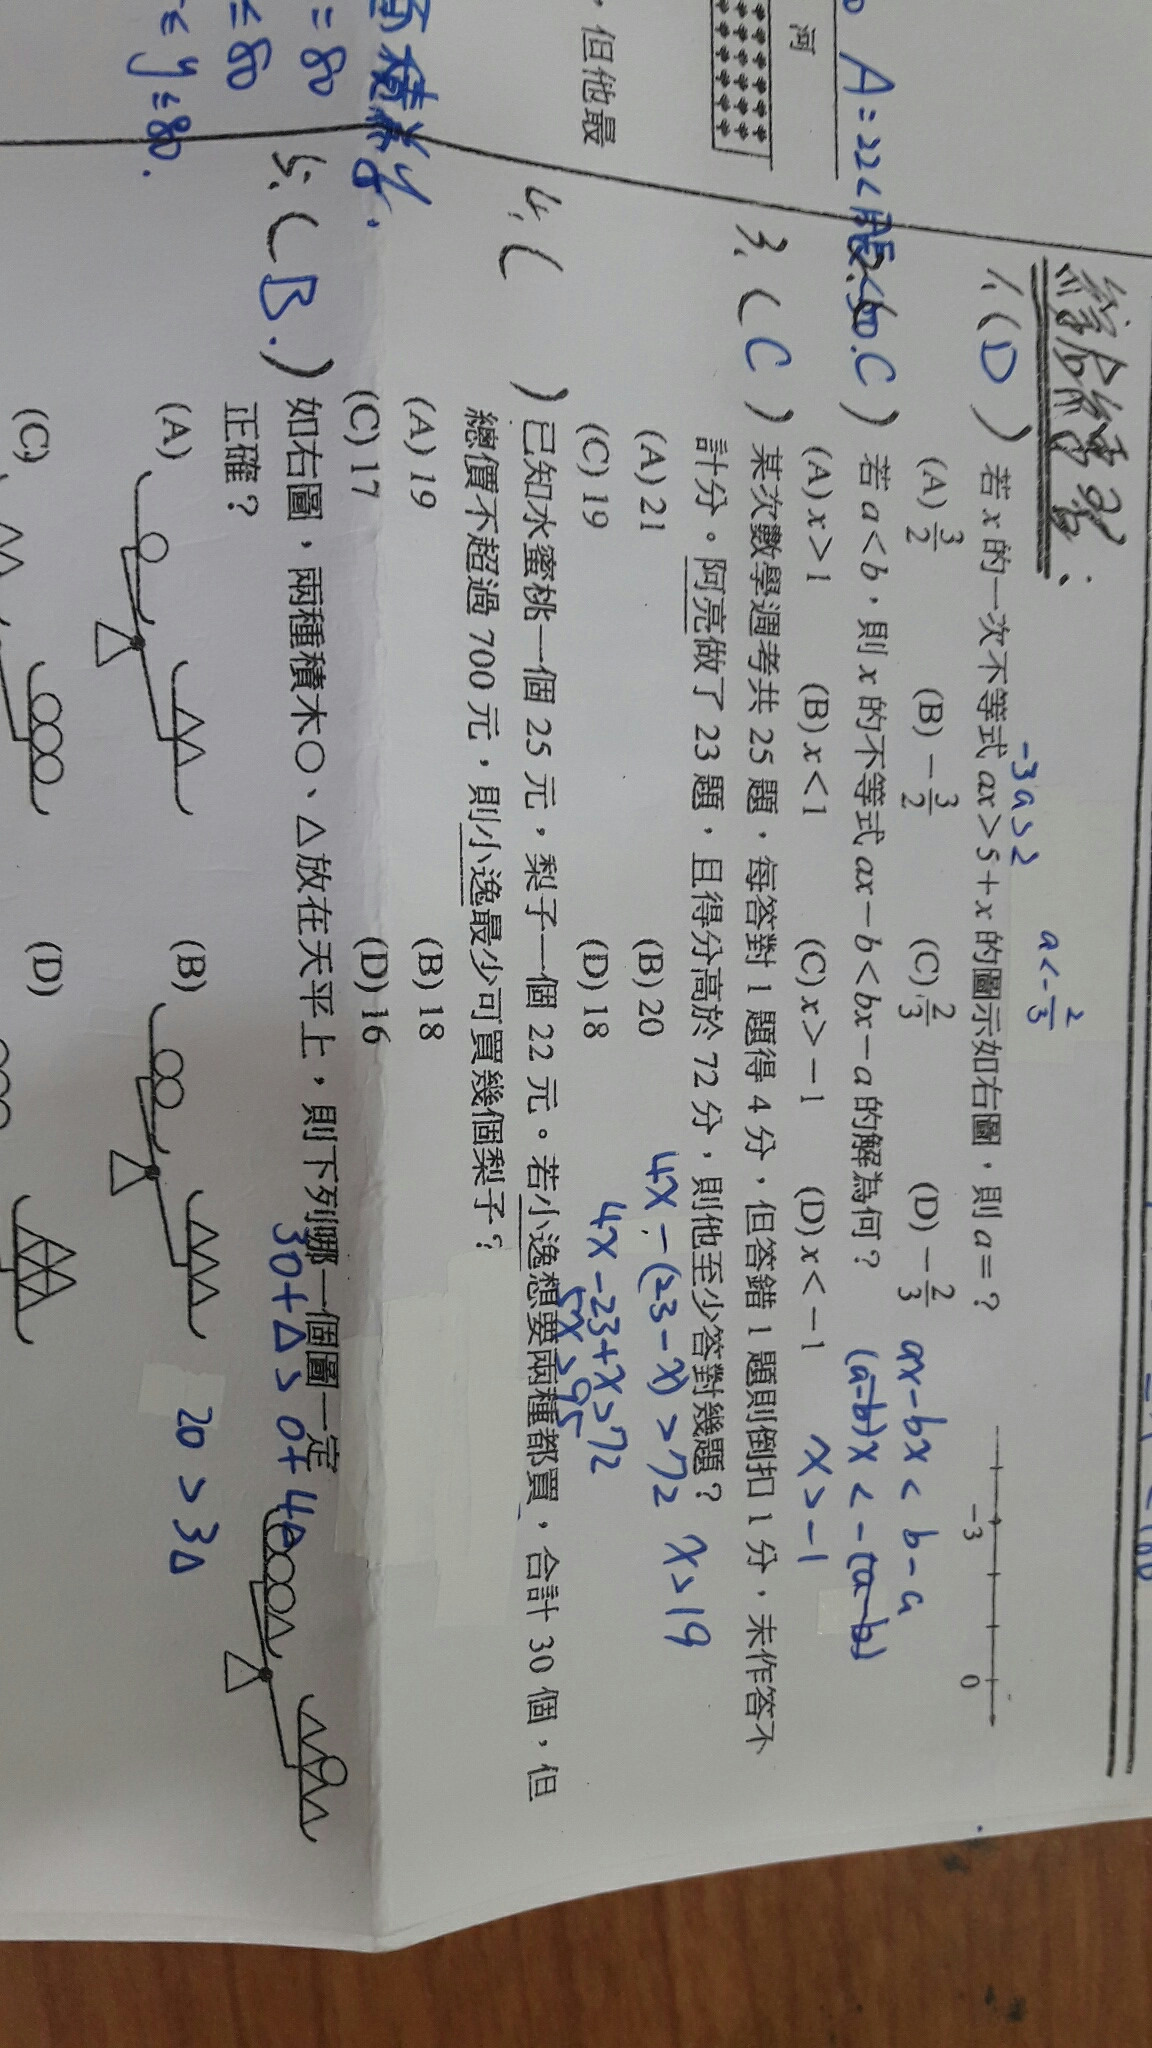 綜合練習:
1.(D) 若 x 的一次不等式 ax>5+x 的圖示如右圖,則 a=?
-3a>2
a<-2/3
-3 0
(A) 3/2 (B) -3/2 (C) 2/3 (D) -2/3
C) 若 a<b,則 x 的不等式 ax-b<bx-a 的解為何?
(A) x>1 (B) x<1 (C) x>-1 (D) x<-1
ax-bx<b-a
(a-b)x<-(a-b)
x>-1
3.(C) 某次數學週考共 25 題,每答對 1 題得 4 分,但答錯 1 題則倒扣 1 分,未作答不
計分。阿亮做了 23 題,且得分高於 72 分,則他至少答對幾題?
(A) 21 (B) 20
(C) 19 (D) 18
4x-(23-x)>72
4x-23+x>72
5x>95
x>19
4.( ) 已知水蜜桃一個 25 元,梨子一個 22 元。若小逸想要兩種都買,合計 30 個,但
總價不超過 700 元,則小逸最少可買幾個梨子?
(A) 19 (B) 18
(C) 17 (D) 16
5.(B.) 如右圖,兩種積木○、△放在天平上,則下列哪一個圖一定
正確?
3○+△>○+4△
2○>3△
(A) (B)
(C) (D)
A=22<
河
,但他最
=80
≤80
≤y≤80.